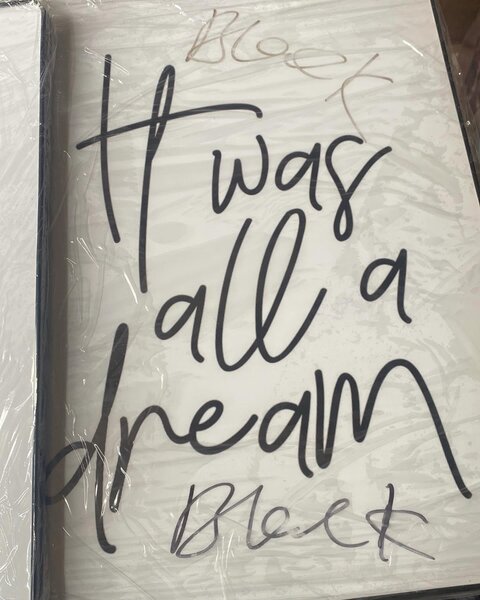 Black
It was
all a
dream
Black